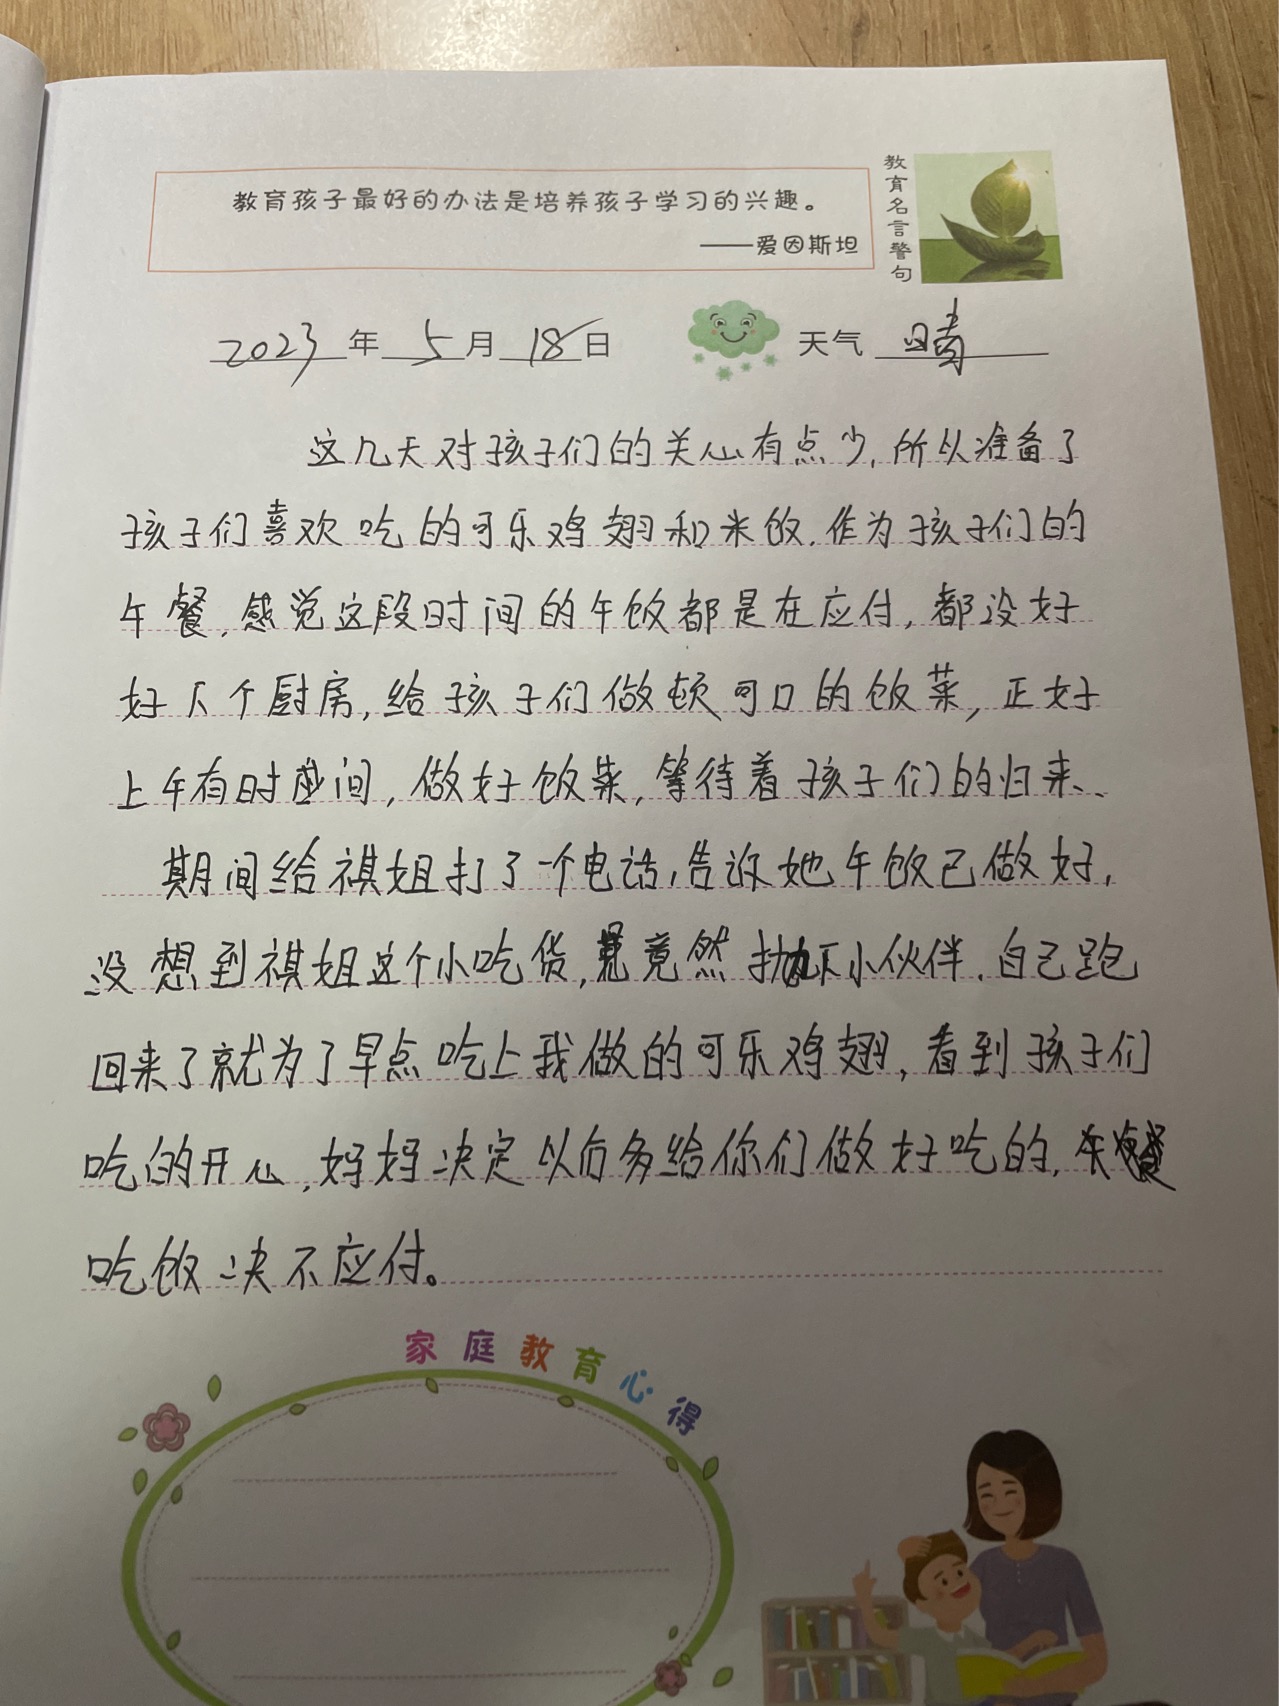 教育孩子最好的办法是培养孩子学习的兴趣。
——爱因斯坦
教育名言警句
2023年5月18日 天气 晴
这几天对孩子们的关心有点少,所以准备了
孩子们喜欢吃的可乐鸡翅和米饭.作为孩子们的
午餐,感觉这段时间的午饭都是在应付,都没好
好下个厨房,给孩子们做顿可口的饭菜,正好
上午有时间,做好饭菜,等待着孩子们的归来、
期间给祺姐打了一个电话,告诉她午饭已做好,
没想到祺姐这个小吃货,竟然抛下小伙伴.自己跑
回来了就为了早点吃上我做的可乐鸡翅,看到孩子们
吃的开心,妈妈决定以后多给你们做好吃的,
吃饭决不应付。
家庭教育心得